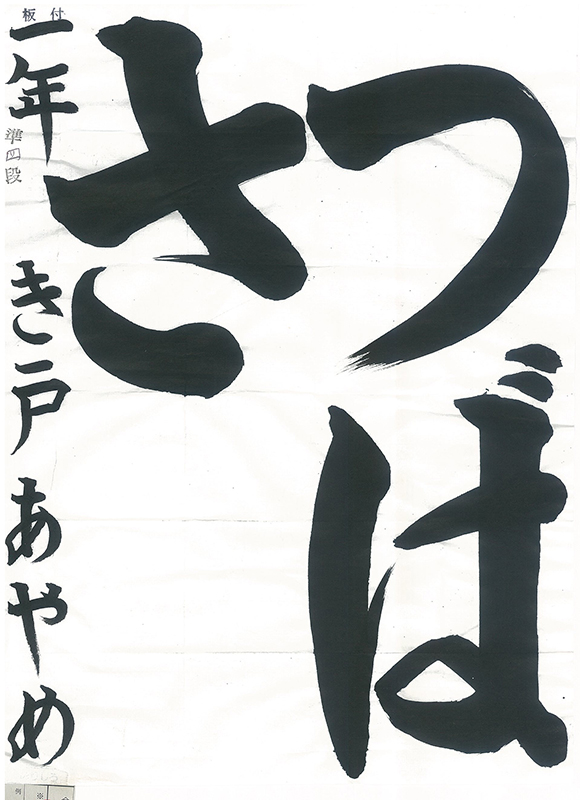 つば
さ
板付
一年 き戸 あやめ
準四段
※
例